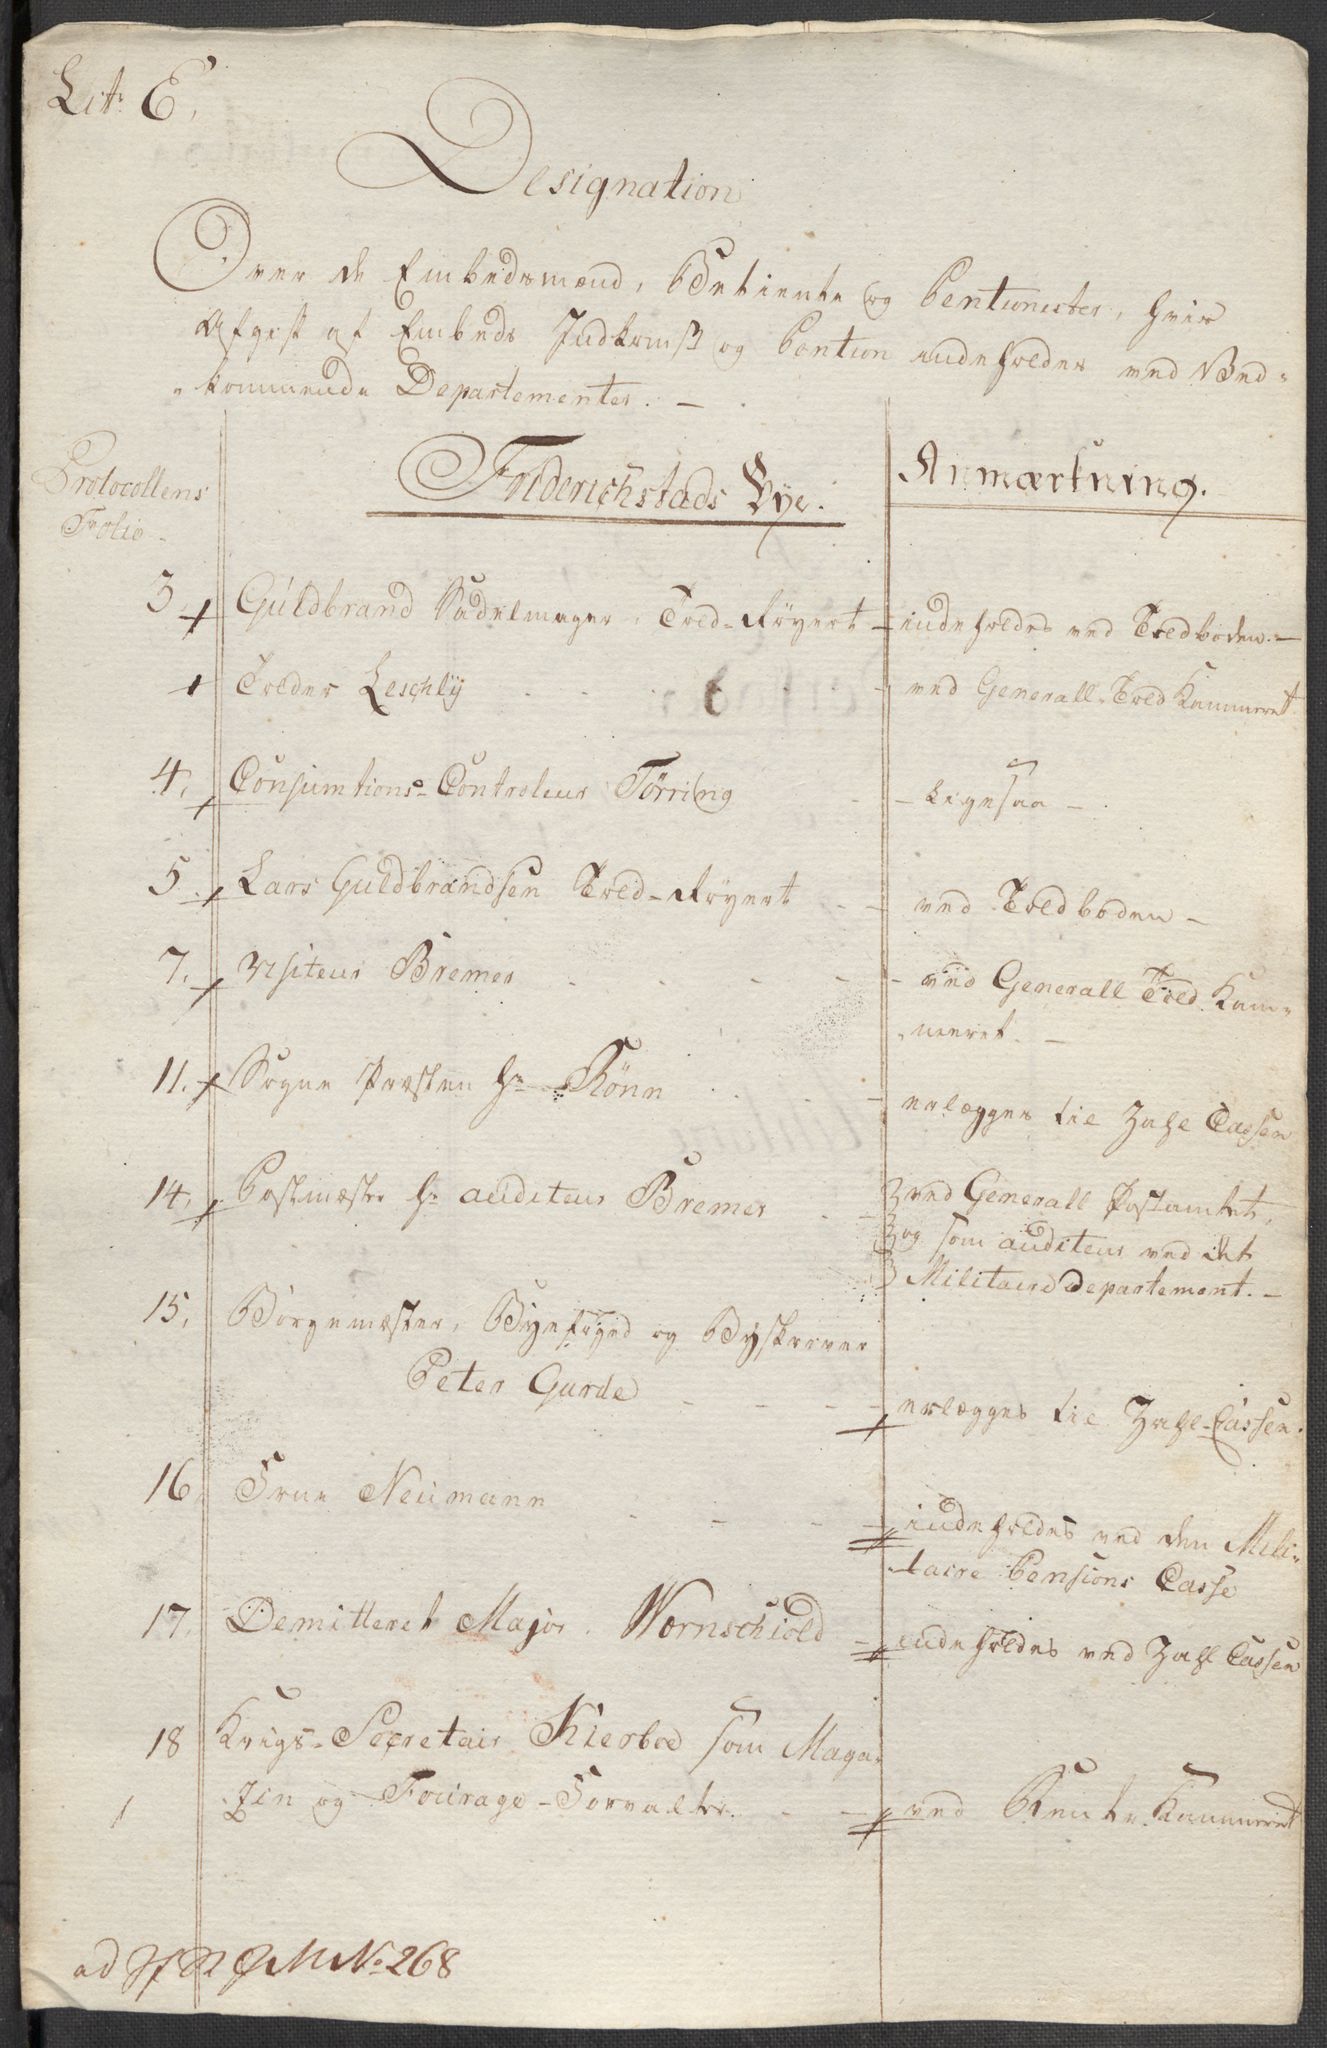 Lit: E,
Designation
Over de Embedsmænd, Betiente og Pentionister, hvis
Afgift af Embeds Indkomst og Pention indeholdes ved Ved-
kommende Departementer. -
Protocollens
Folio
Friderichstads Bye.
Anmærkning.
3. Guldbrand Sadelmager, Told-Røyert - indeholdes ved Toldboden. -
Tolder Leschly - ved Generall-Told Kammeret
4. Consumtions-Controleur Törring - Ligesaa -
5. Lars Guldbrandsen Told-Røyert - ved Toldboden -
7. Visiteur Bremer - ved Generall Told Kam-
meret. -
11. Sogne Præsten Hr Rönn - erlægges til Zahl Cassen
14. Postmæster Hr auditeur Bremer - ved Generall Postamtet,
og som auditeur ved det
Militaire Departement. -
15. Borgemæster, Byefoged og Byskriver
Peter Gurde - erlægges til Zahl-Cassen.
16. Frue Neumann - indeholdes ved den Mili-
taire Pensions Casse
17. Demitteret Major Wærnschiold - indeholdes ved Zahl Cassen
18 Krigs-Secretair Kierboe som Maga-
zin og Fourage-Forvalter - ved Rente Kammeret
ad No 268